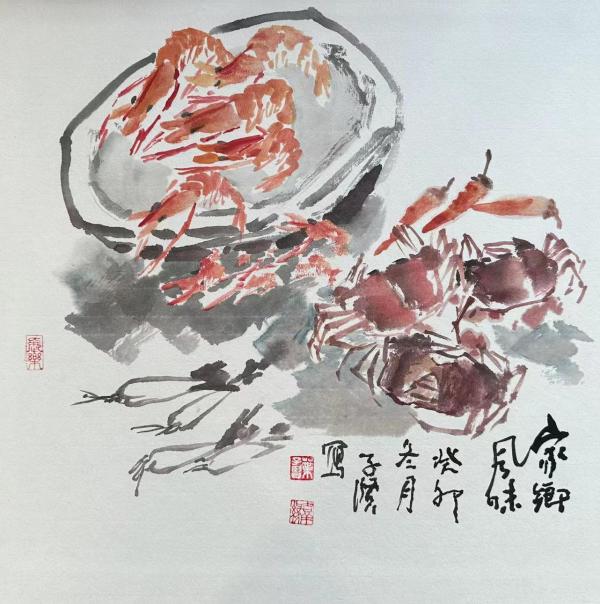 家鄉
风味
癸卯
冬月
子
寫